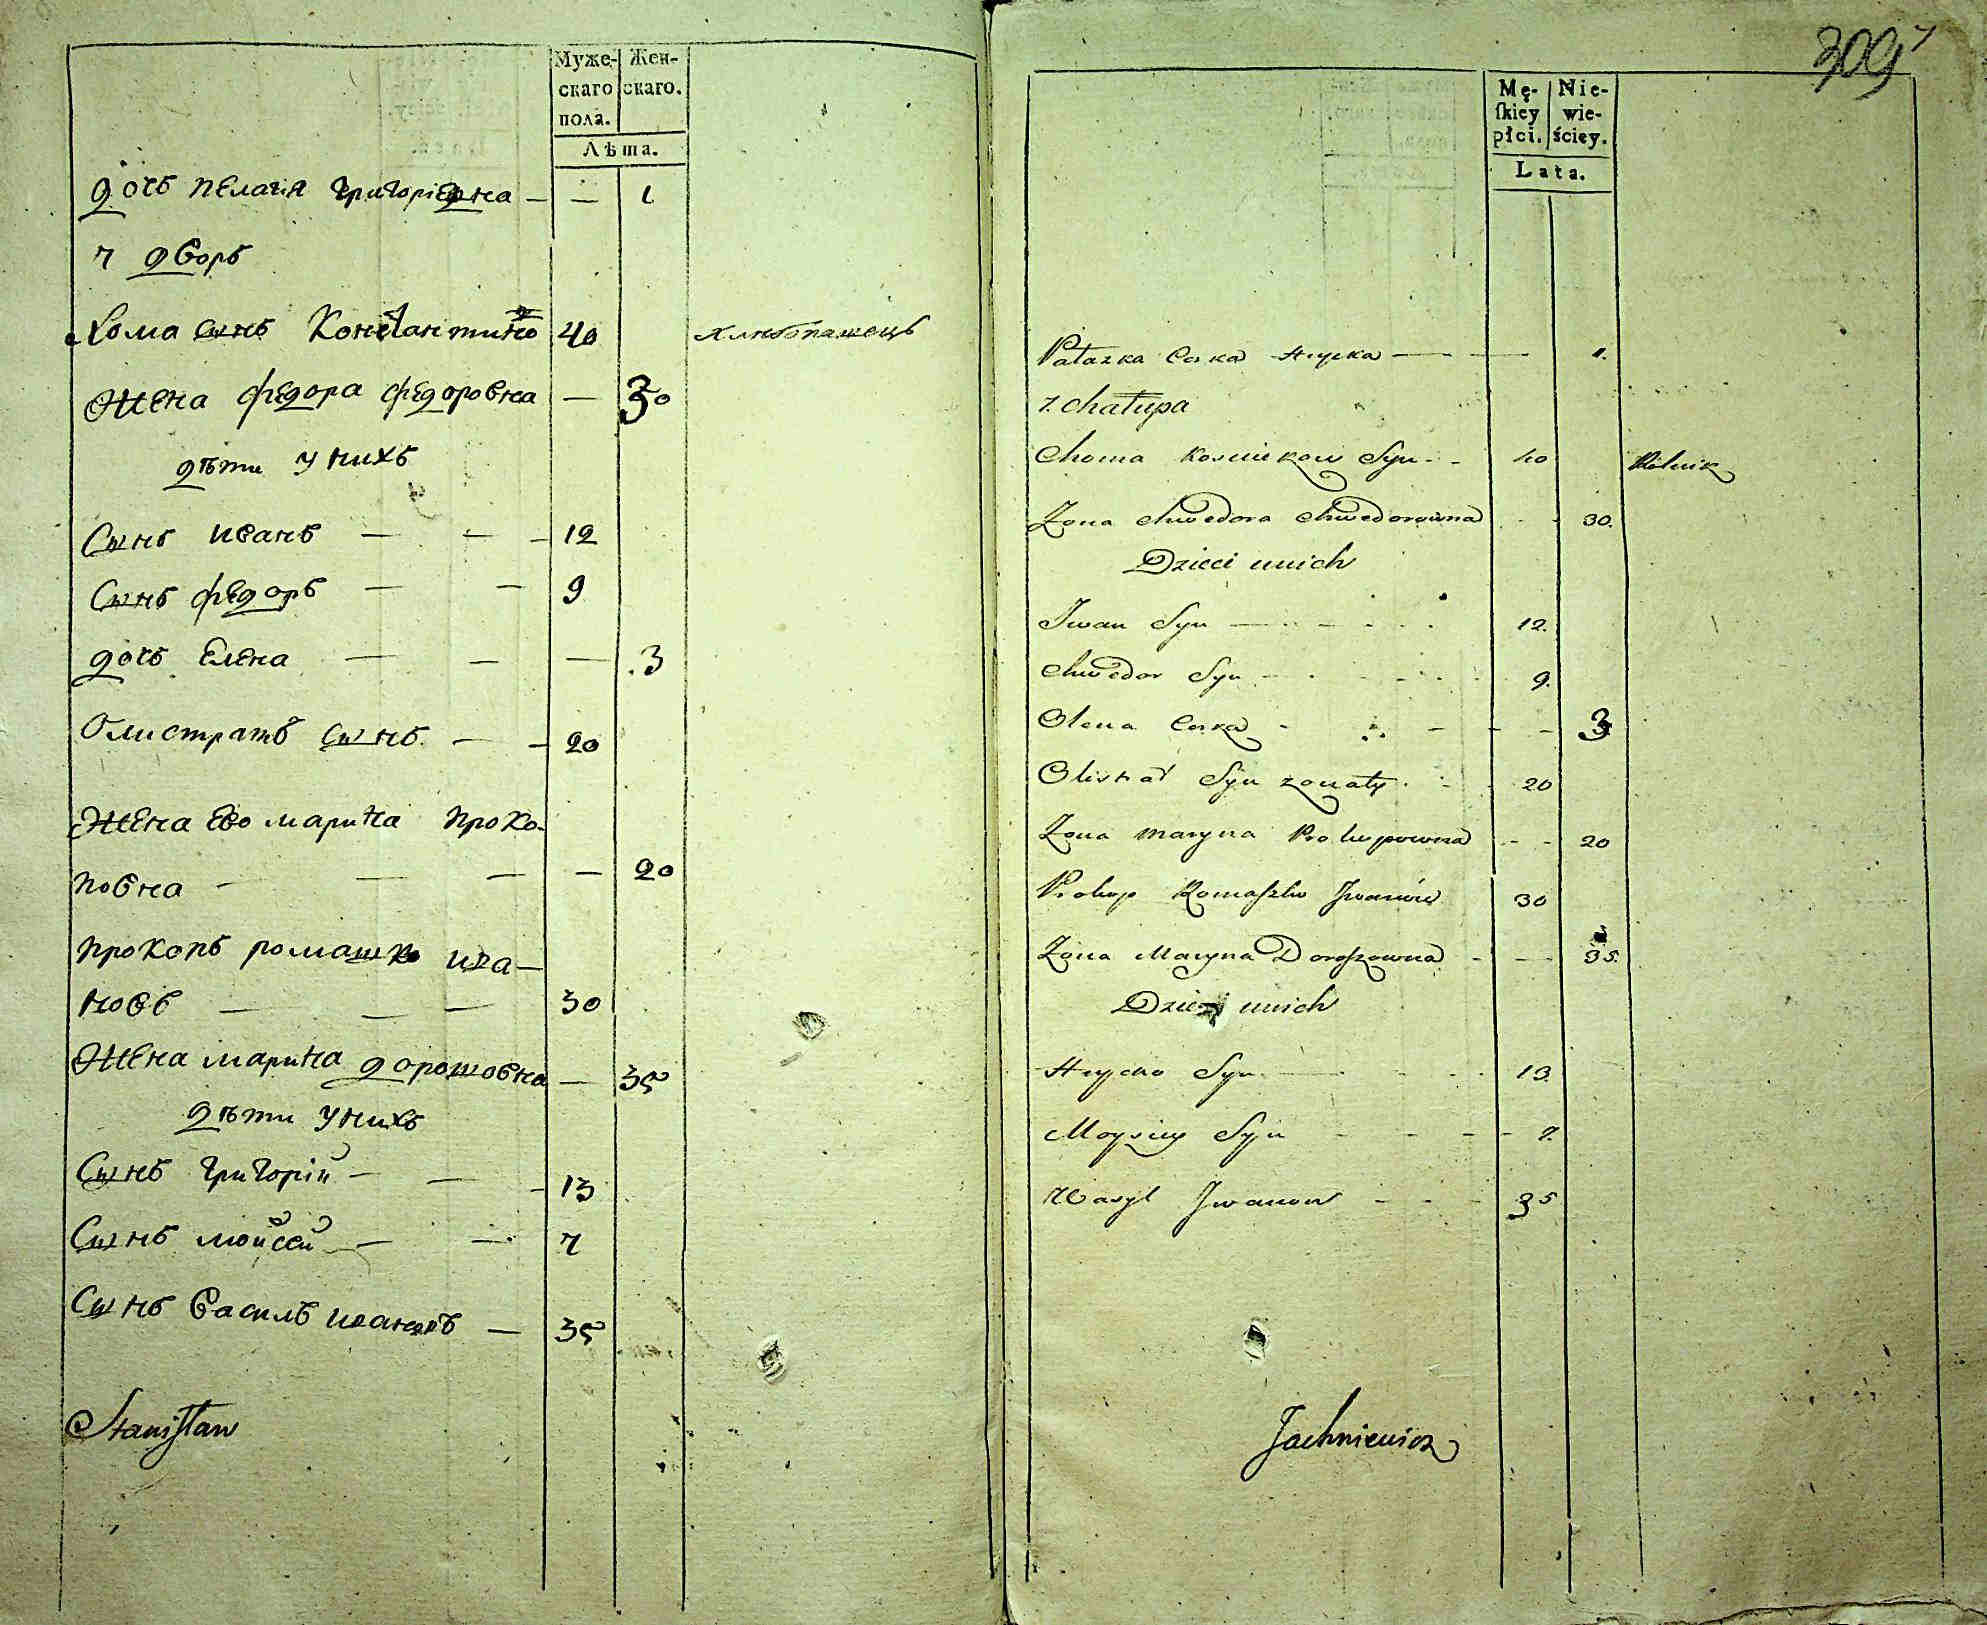 Муже-
скаго
пола.
Жен-
скаго.
Лѣта.
дочь пелагiя григорiевна — — 1
7 дворъ
Хома сынъ Константиновъ 40 хлибопашецъ
Жена федора федоровна — 30
дѣти у нихъ
Сынъ иванъ — — — 12
Сынъ федоръ — — 9
дочь Елена — — — 3
Олистратъ сынъ — — 20
Жена его марина Проко-
повна — — — — 20
прокопъ ромашко ива-
новъ — — — 30
Жена марина дорошовна — 35
дѣти у нихъ
Сынъ григорiй — — — 13
Сынъ мойсей — — 7
Сынъ василъ ивановъ — 35
Stanisław
309
Mę-
ſkiey
płci.
Nie-
wie-
ściey.
Lata.
Pałazka Corka Hrycka — — 1.
7. Chałupa
Choma Kosciukow Syn - - 40 Rolnik
Zona Chwedora Chwedorowna - - 30.
Dzieci unich
Iwan Syn — - - - 12.
Chwedor Syn - - - - 9.
Olena Corka - - - - - 3
Olistrat Syn zonaty - - 20
Zona Maryna Prokopowna - - 20
Prokop Romaſzko Iwanów 30
Zona Maryna Doroſzowna - - 35.
Dzieci unich
Hrycko Syn — - - 13.
Moysiey Syn - - - - 7.
Wasyl Iwanow - - - 35
Jachniewicz